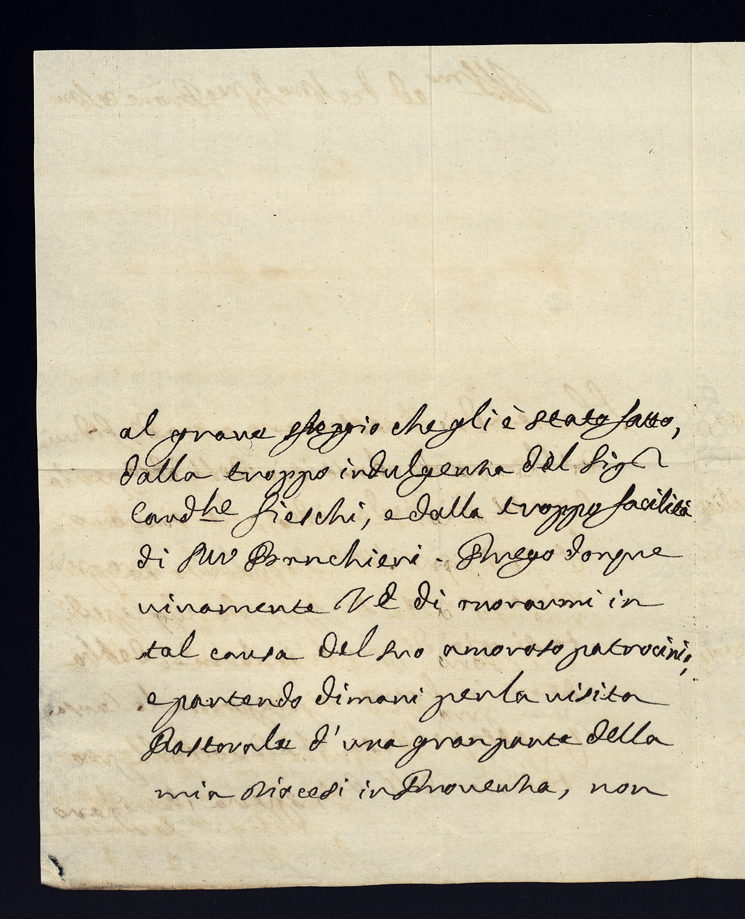 al grave sfreggio che gli è stato fatto,
dalla troppo indulgenza del Sigr
Cardle Fieschi, e dalla troppo facilità
di Banchieri. Prego donque
vivamente VE di onorarmi in
tal causa del suo amoroso patrocinio,
e partendo dimani per la visita
Pastorale d'una gran parte della
mia diocesi in Provenza, non